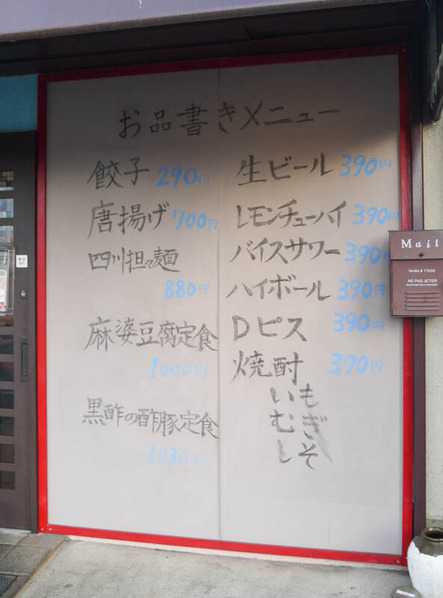 お品書きメニュー
餃子 290円
唐揚げ 700円
四川担々麺
880円
麻婆豆腐定食
1000円
黒酢の酢豚定食
1030円
生ビール 390円
レモンチューハイ 390円
バイスサワー 390円
ハイボール 390円
Dピス 390円
焼酎 390円
いも
むぎ
しそ
Mail
NE PAS JETER